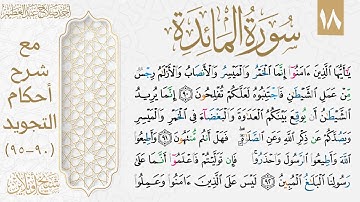 ١٨
سورة المائدة
أحمد صلاح عبد العظيم
مع
شرح
أحكام
التجويد
(٩٠-٩٥)
يَٰٓأَيُّهَا ٱلَّذِينَ ءَامَنُوٓاْ إِنَّمَا ٱلۡخَمۡرُ وَٱلۡمَيۡسِرُ وَٱلۡأَنصَابُ وَٱلۡأَزۡلَٰمُ رِجۡسٞ
مِّنۡ عَمَلِ ٱلشَّيۡطَٰنِ فَٱجۡتَنِبُوهُ لَعَلَّكُمۡ تُفۡلِحُونَ ٩٠ إِنَّمَا يُرِيدُ
ٱلشَّيۡطَٰنُ أَن يُوقِعَ بَيۡنَكُمُ ٱلۡعَدَٰوَةَ وَٱلۡبَغۡضَآءَ فِي ٱلۡخَمۡرِ وَٱلۡمَيۡسِرِ
وَيَصُدَّكُمۡ عَن ذِكۡرِ ٱللَّهِ وَعَنِ ٱلصَّلَوٰةِۖ فَهَلۡ أَنتُم مُّنتَهُونَ ٩١ وَأَطِيعُواْ
ٱللَّهَ وَأَطِيعُواْ ٱلرَّسُولَ وَٱحۡذَرُواْۚ فَإِن تَوَلَّيۡتُمۡ فَٱعۡلَمُوٓاْ أَنَّمَا عَلَىٰ
رَسُولِنَا ٱلۡبَلَٰغُ ٱلۡمُبِينُ ٩٢ لَيۡسَ عَلَى ٱلَّذِينَ ءَامَنُواْ وَعَمِلُواْ